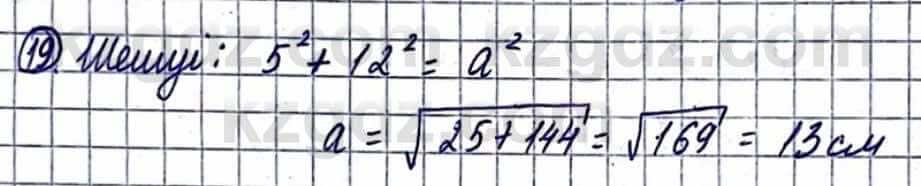 19. Шешуі: 5² + 12² = a²
a = √25+144 = √169 = 13 см
kzgdz.com kzgdz.com
kzgdz.com